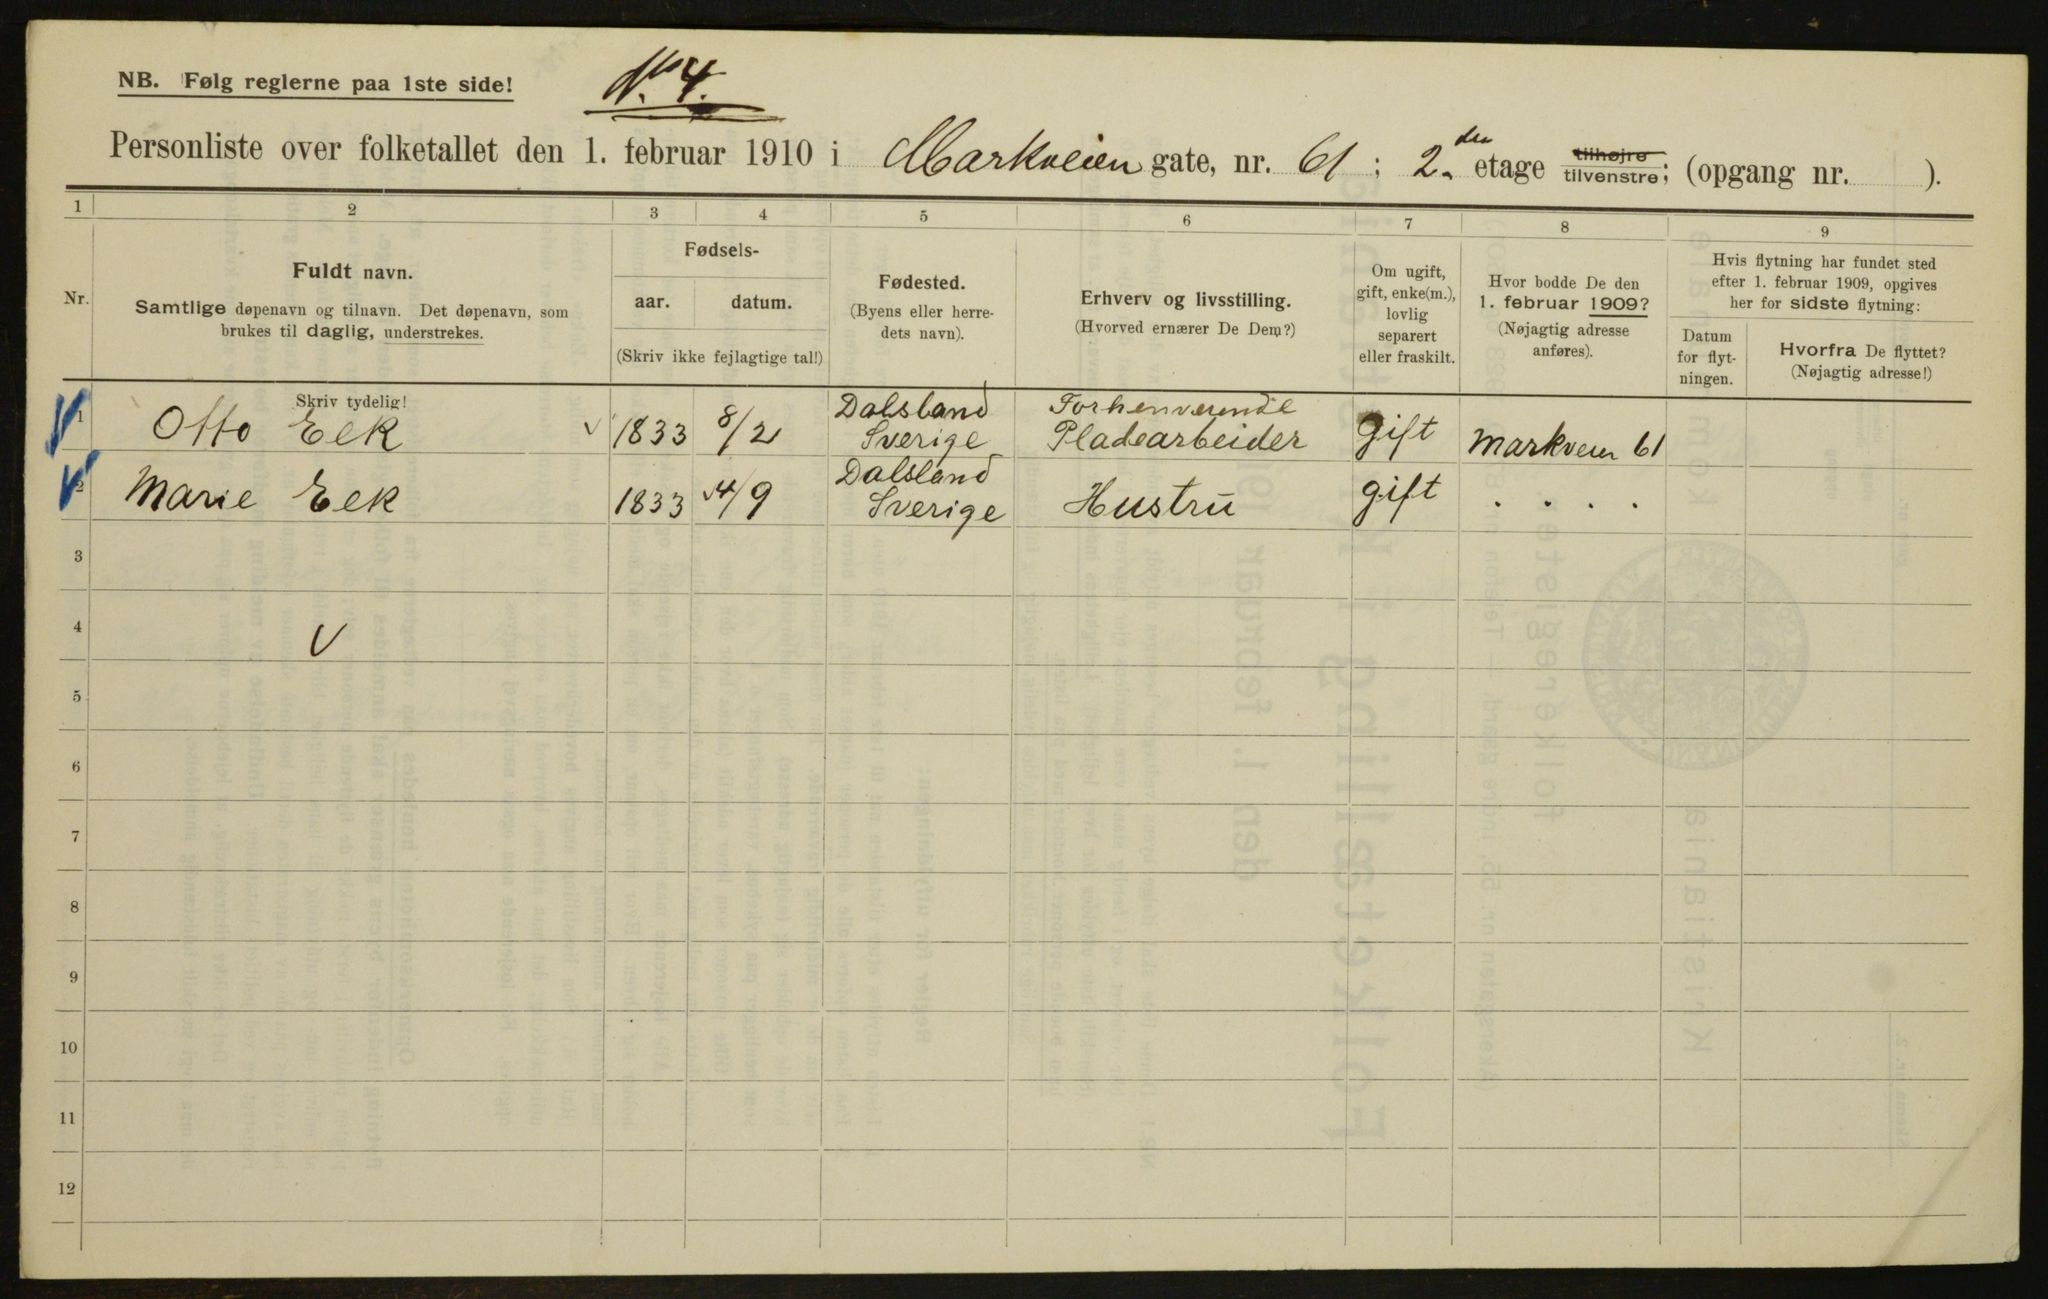 NB. Følg reglerne paa 1ste side!
No. 4.
Personliste over folketallet den 1. februar 1910 i Markveien gate, nr. 61 ; 2.den etage tilhøjre tilvenstre; (opgang nr. ).
1 2 3 4 5 6 7 8 9
Nr.
Fuldt navn.
Samtlige døpenavn og tilnavn. Det døpenavn, som
brukes til daglig, understrekes.
Fødsels-
aar. datum.
(Skriv ikke fejlagtige tal!)
Fødested.
(Byens eller herre-
dets navn).
Erhverv og livsstilling.
(Hvorved ernærer De Dem?)
Om ugift,
gift, enke(m.),
lovlig
separert
eller fraskilt.
Hvor bodde De den
1. februar 1909?
(Nøjagtig adresse
anføres).
Hvis flytning har fundet sted
efter 1. februar 1909, opgives
her for sidste flytning:
Datum
for flyt-
ningen.
Hvorfra De flyttet?
(Nøjagtig adresse!)
Skriv tydelig!
1 Otto Eek 1833 8/2 Dalsland Sverige Forhenværende Pladearbeider Gift Markveien 61
2 Marie Eek 1833 14/9 Dalsland Sverige Hustru gift " " " "
3
4
5
6
7
8
9
10
11
12